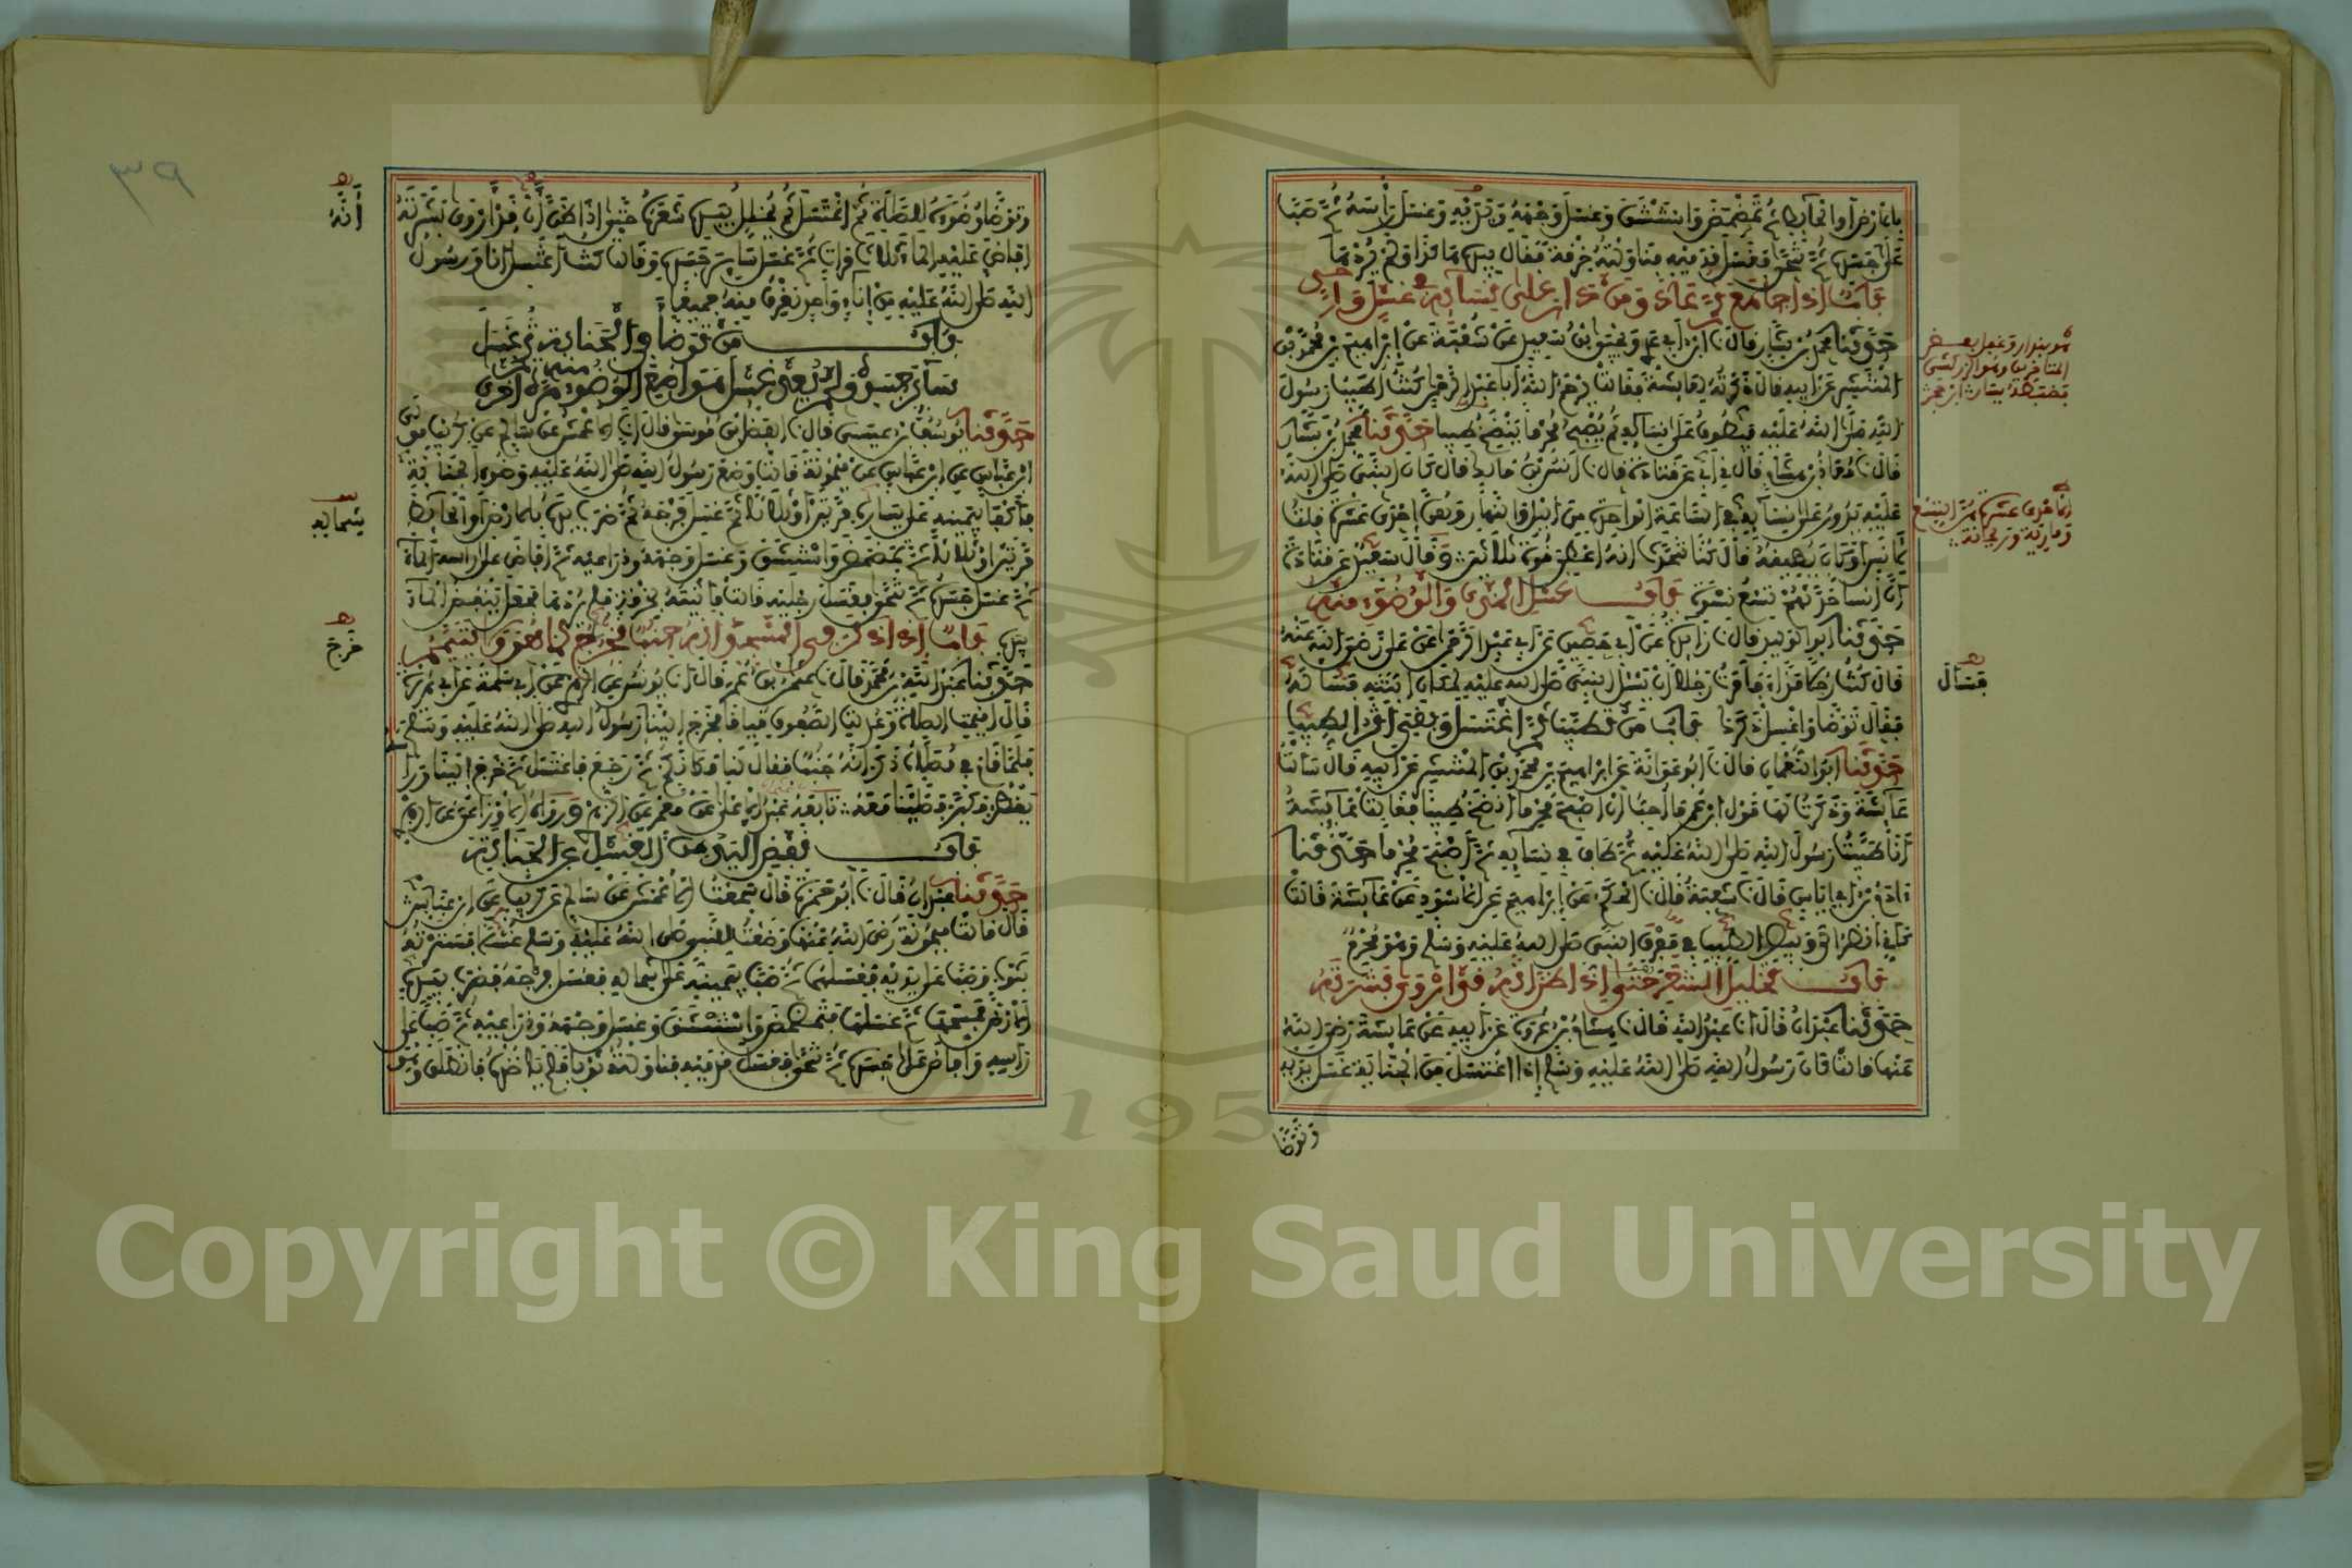 بالارض او الحايط ثم تمضمض واستنشق وغسل وجهه ويديه وغسل راسه ثم صب
على جسده ثم تنحى فغسل قدميه فناولته خرقة فقال بيده هكذا ولم يردها
باب اذا جامع ثم عاد ومن دار على نسايه في غسل واحد
حدثنا محمد بن بشار قال نا ابن ابي عدي ويحيى بن سعيد عن شعبة عن ابراهيم بن محمد بن
المنتشر عن ابيه قال ذكرته لعايشة فقالت يرحم الله ابا عبد الرحمن كنت اطيب رسول
الله صلى الله عليه فيطوف على نسايه ثم يصبح محرما ينضح طيبا حدثنا محمد بن بشار
قال نا معاذ بن هشام قال ني ابي عن قتادة قال نا انس بن مالك قال كان النبي صلى الله
عليه يدور على نسايه في الساعة الواحدة من الليل والنهار وهن احدى عشرة قلت
لانس او كان يطيقه قال كنا نتحدث انه اعطي قوة ثلاثين وقال سعيد عن قتادة
ان انسا حدثهم تسع نسوة باب غسل المذي والوضوء منه
حدثنا ابو الوليد قال نا زايدة عن ابي حصين عن ابي عبد الرحمن عن علي رضي الله عنه
قال كنت رجلا مذاء فامرت رجلا ان يسل النبي صلى الله عليه لمكان ابنته فسأله
فقال توضا واغسل ذكرك باب من تطيب ثم اغتسل وبقي اثر الطيب
حدثنا ابو النعمان قال نا ابو عوانة عن ابراهيم بن محمد بن المنتشر عن ابيه قال سالت
عايشة وذكرت لها قول ابن عمر ما احب ان اصبح محرما انضخ طيبا فقالت عايشة
انا طيبت رسول الله صلى الله عليه ثم طاف في نسايه ثم اصبح محرما حدثنا
ادم بن ابي اياس قال نا شعبة قال نا الحكم عن ابراهيم عن الاسود عن عايشة قالت
كاني انظر الى وبيص الطيب في مفرق النبي صلى الله عليه وسلم وهو محرم
باب تخليل الشعر حتى اذا ظن انه قد اروى بشرته
حدثنا عبدان قال انا عبد الله قال نا هشام بن عروة عن ابيه عن عايشة رضي الله
عنها قالت كان رسول الله صلى الله عليه وسلم اذا اغتسل من الجنابة غسل يديه
وتوضا
احدى عشرة
فسال
وتوضا وضوءه للصلاة ثم اغتسل ثم يخلل بيده شعره حتى اذا ظن ان قد اروى بشرته
افاض عليه الماء ثلاث مرات ثم غسل ساير جسده وقالت كنت اغتسل انا ورسول
الله صلى الله عليه من اناء واحد نغرف منه جميعا
باب من توضا في الجنابة ثم غسل
ساير جسده ولم يعد غسل مواضع الوضوء منه مرة اخرى
حدثنا يوسف بن عيسى قال نا الفضل بن موسى قال انا الاعمش عن سالم عن كريب مولى
ابن عباس عن ابن عباس عن ميمونة قالت وضع رسول الله صلى الله عليه وضوء الجنابة
فاكفا بيمينه على يساره مرتين او ثلاثا ثم غسل فرجه ثم ضرب يده بالارض او الحايط
مرتين او ثلاثا ثم تمضمض واستنشق وغسل وجهه وذراعيه ثم افاض على راسه الماء
ثم غسل جسده ثم تنحى فغسل رجليه قالت فاتيته بخرقة فلم يردها فجعل ينفض الماء
بيده باب اذا ذكر في المسجد انه جنب يخرج كما هو ولا يتيمم
حدثنا عبد الله بن محمد قال نا عثمان بن عمر قال انا يونس عن الزهري عن ابي سلمة عن ابي هريرة
قال اقيمت الصلاة وعدلت الصفوف قياما فخرج الينا رسول الله صلى الله عليه وسلم
فلما قام في مصلاه ذكر انه جنب فقال لنا مكانكم ثم رجع فاغتسل ثم خرج الينا وراسه
يقطر فكبر فصلينا معه تابعه عبد الاعلى عن معمر عن الزهري ورواه الاوزاعي عن الزهري
باب نفض اليدين من الغسل عن الجنابة
حدثنا عبدان قال نا ابو حمزة قال سمعت الاعمش عن سالم عن كريب عن ابن عباس
قال قالت ميمونة رضي الله عنها وضعت للنبي صلى الله عليه وسلم غسلا فسترته
بثوب وصب على يديه فغسلهما ثم صب بيمينه على شماله فغسل فرجه فضرب بيده
الارض فمسحها ثم غسلها فتمضمض واستنشق وغسل وجهه وذراعيه ثم صب على
راسه وافاض على جسده ثم تنحى فغسل قدميه فناولته ثوبا فلم ياخذه فانطلق وهو
أنه
شماله
خرج
٣٩
Copyright © King Saud University
1957